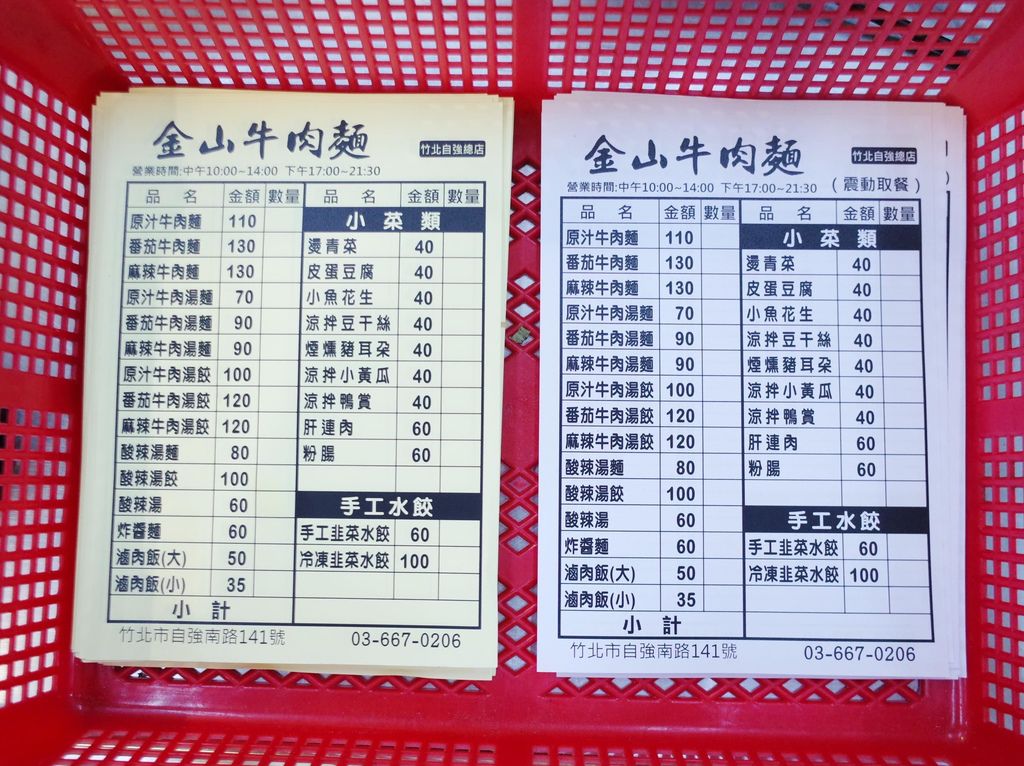 金山牛肉麵 竹北自強總店
營業時間:中午10:00~14:00 下午17:00~21:30
品 名 金額 數量 品 名 金額 數量
原汁牛肉麵 110 小菜類
番茄牛肉麵 130 燙青菜 40
麻辣牛肉麵 130 皮蛋豆腐 40
原汁牛肉湯麵 70 小魚花生 40
番茄牛肉湯麵 90 涼拌豆干絲 40
麻辣牛肉湯麵 90 煙燻豬耳朵 40
原汁牛肉湯餃 100 涼拌小黃瓜 40
番茄牛肉湯餃 120 涼拌鴨賞 40
麻辣牛肉湯餃 120 肝連肉 60
酸辣湯麵 80 粉腸 60
酸辣湯餃 100
酸辣湯 60 手工水餃
炸醬麵 60 手工韭菜水餃 60
滷肉飯(大) 50 冷凍韭菜水餃 100
滷肉飯(小) 35
小 計
竹北市自強南路141號 03-667-0206
金山牛肉麵 竹北自強總店
營業時間:中午10:00~14:00 下午17:00~21:30 (震動取餐)
品 名 金額 數量 品 名 金額 數量
原汁牛肉麵 110 小菜類
番茄牛肉麵 130 燙青菜 40
麻辣牛肉麵 130 皮蛋豆腐 40
原汁牛肉湯麵 70 小魚花生 40
番茄牛肉湯麵 90 涼拌豆干絲 40
麻辣牛肉湯麵 90 煙燻豬耳朵 40
原汁牛肉湯餃 100 涼拌小黃瓜 40
番茄牛肉湯餃 120 涼拌鴨賞 40
麻辣牛肉湯餃 120 肝連肉 60
酸辣湯麵 80 粉腸 60
酸辣湯餃 100
酸辣湯 60 手工水餃
炸醬麵 60 手工韭菜水餃 60
滷肉飯(大) 50 冷凍韭菜水餃 100
滷肉飯(小) 35
小 計
竹北市自強南路141號 03-667-0206